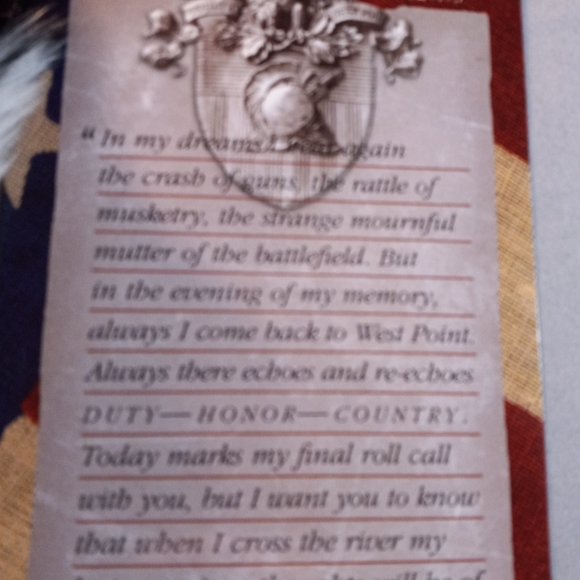 "In my dreams I hear again
the crash of guns, the rattle of
musketry, the strange mournful
mutter of the battlefield. But
in the evening of my memory,
always I come back to West Point.
Always there echoes and re-echoes
DUTY—HONOR—COUNTRY.
Today marks my final roll call
with you, but I want you to know
that when I cross the river my
will be of